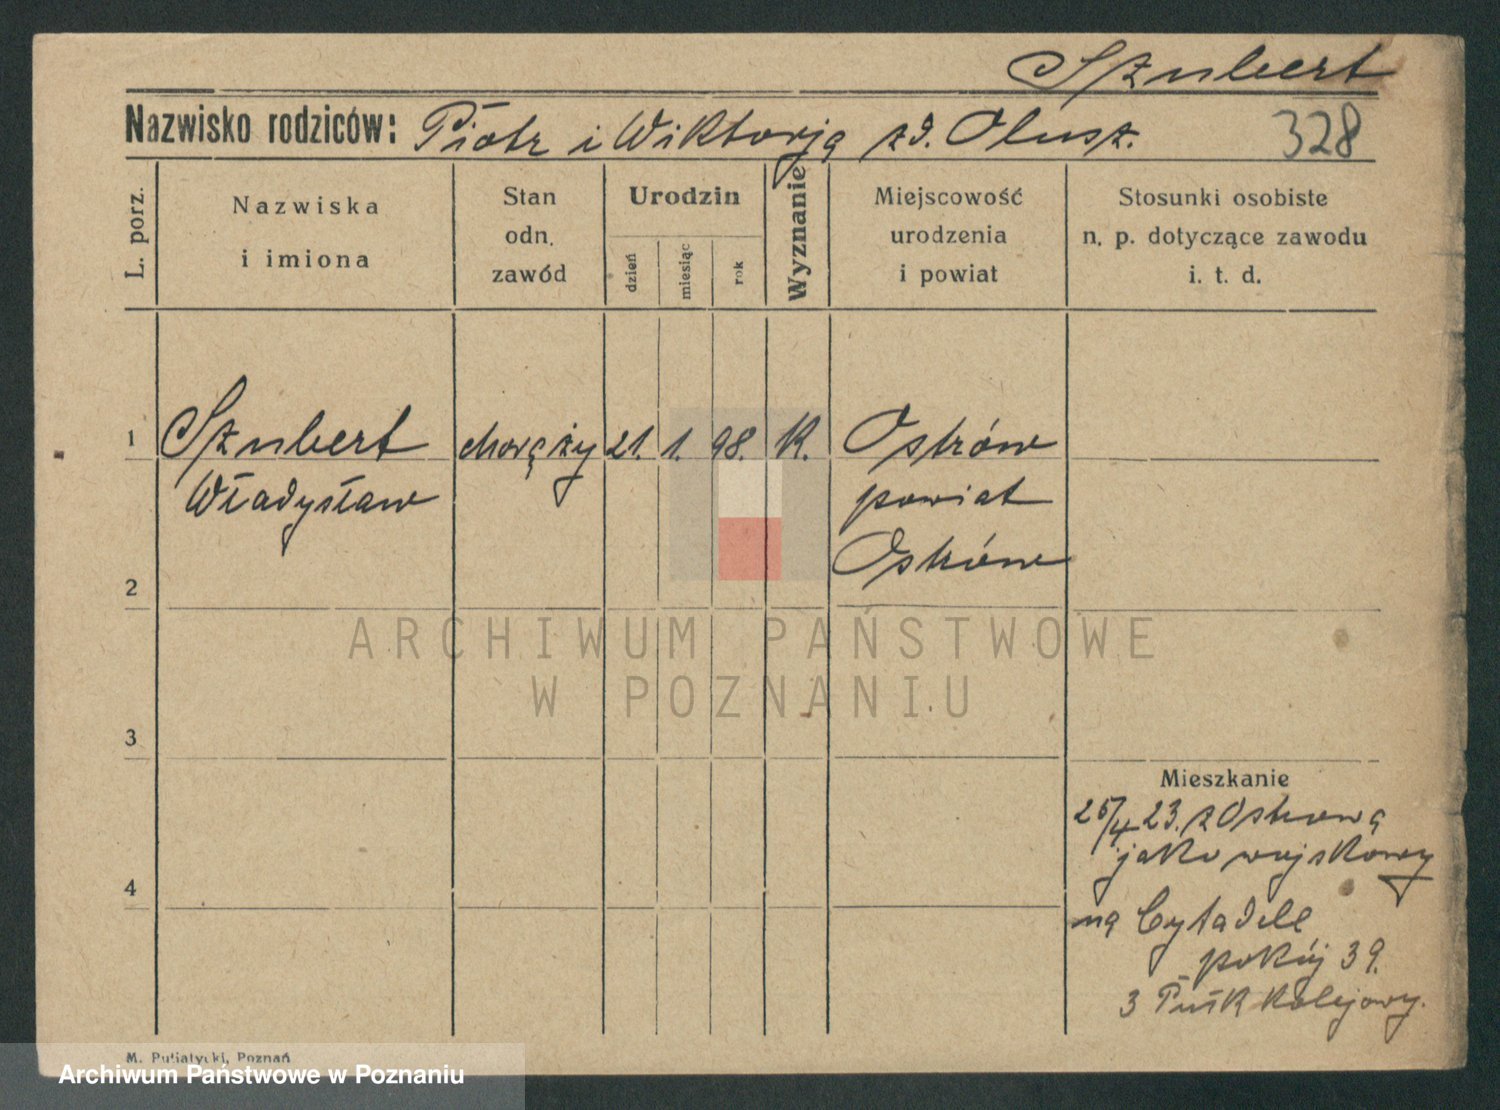 Sznbert
Nazwisko rodziców: Piotr i Wiktorja zd. Olusz. 328
L. porz.
Nazwiska
i imiona
Stan
odn.
zawód
Urodzin
dzień
miesiąc
rok
Wyznanie
Miejscowość
urodzenia
i powiat
Stosunki osobiste
n. p. dotyczące zawodu
i. t. d.
1 Sznbert chorąży 21. 1. 98. K. Ostrów
Władysław powiat
Ostrów
2
ARCHIWUM PAŃSTWOWE
W POZNANIU
3
Mieszkanie
25/4 23. z Ostrowa
jako wojskowy
4
na Cytadele
pokój 39.
3 Pułk Kolejowy.
M. Putiatycki, Poznań
Archiwum Państwowe w Poznaniu